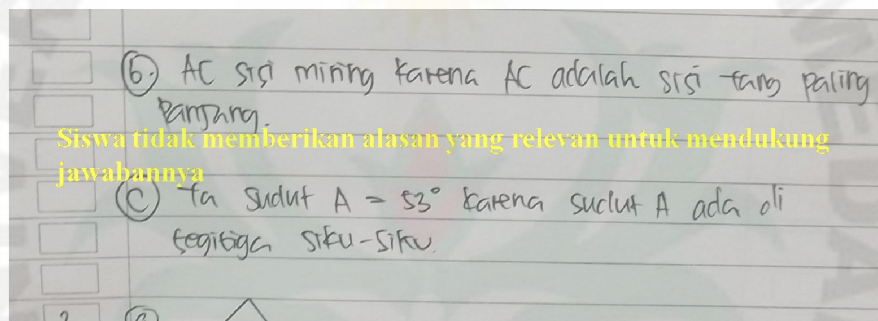 (b.) AC sisi miring karena AC adalah sisi yang paling
Panjang.
Siswa tidak memberikan alasan yang relevan untuk mendukung
jawabannya
(C) Ya sudut A = 53° karena sudut A ada di
segitiga siku-siku.